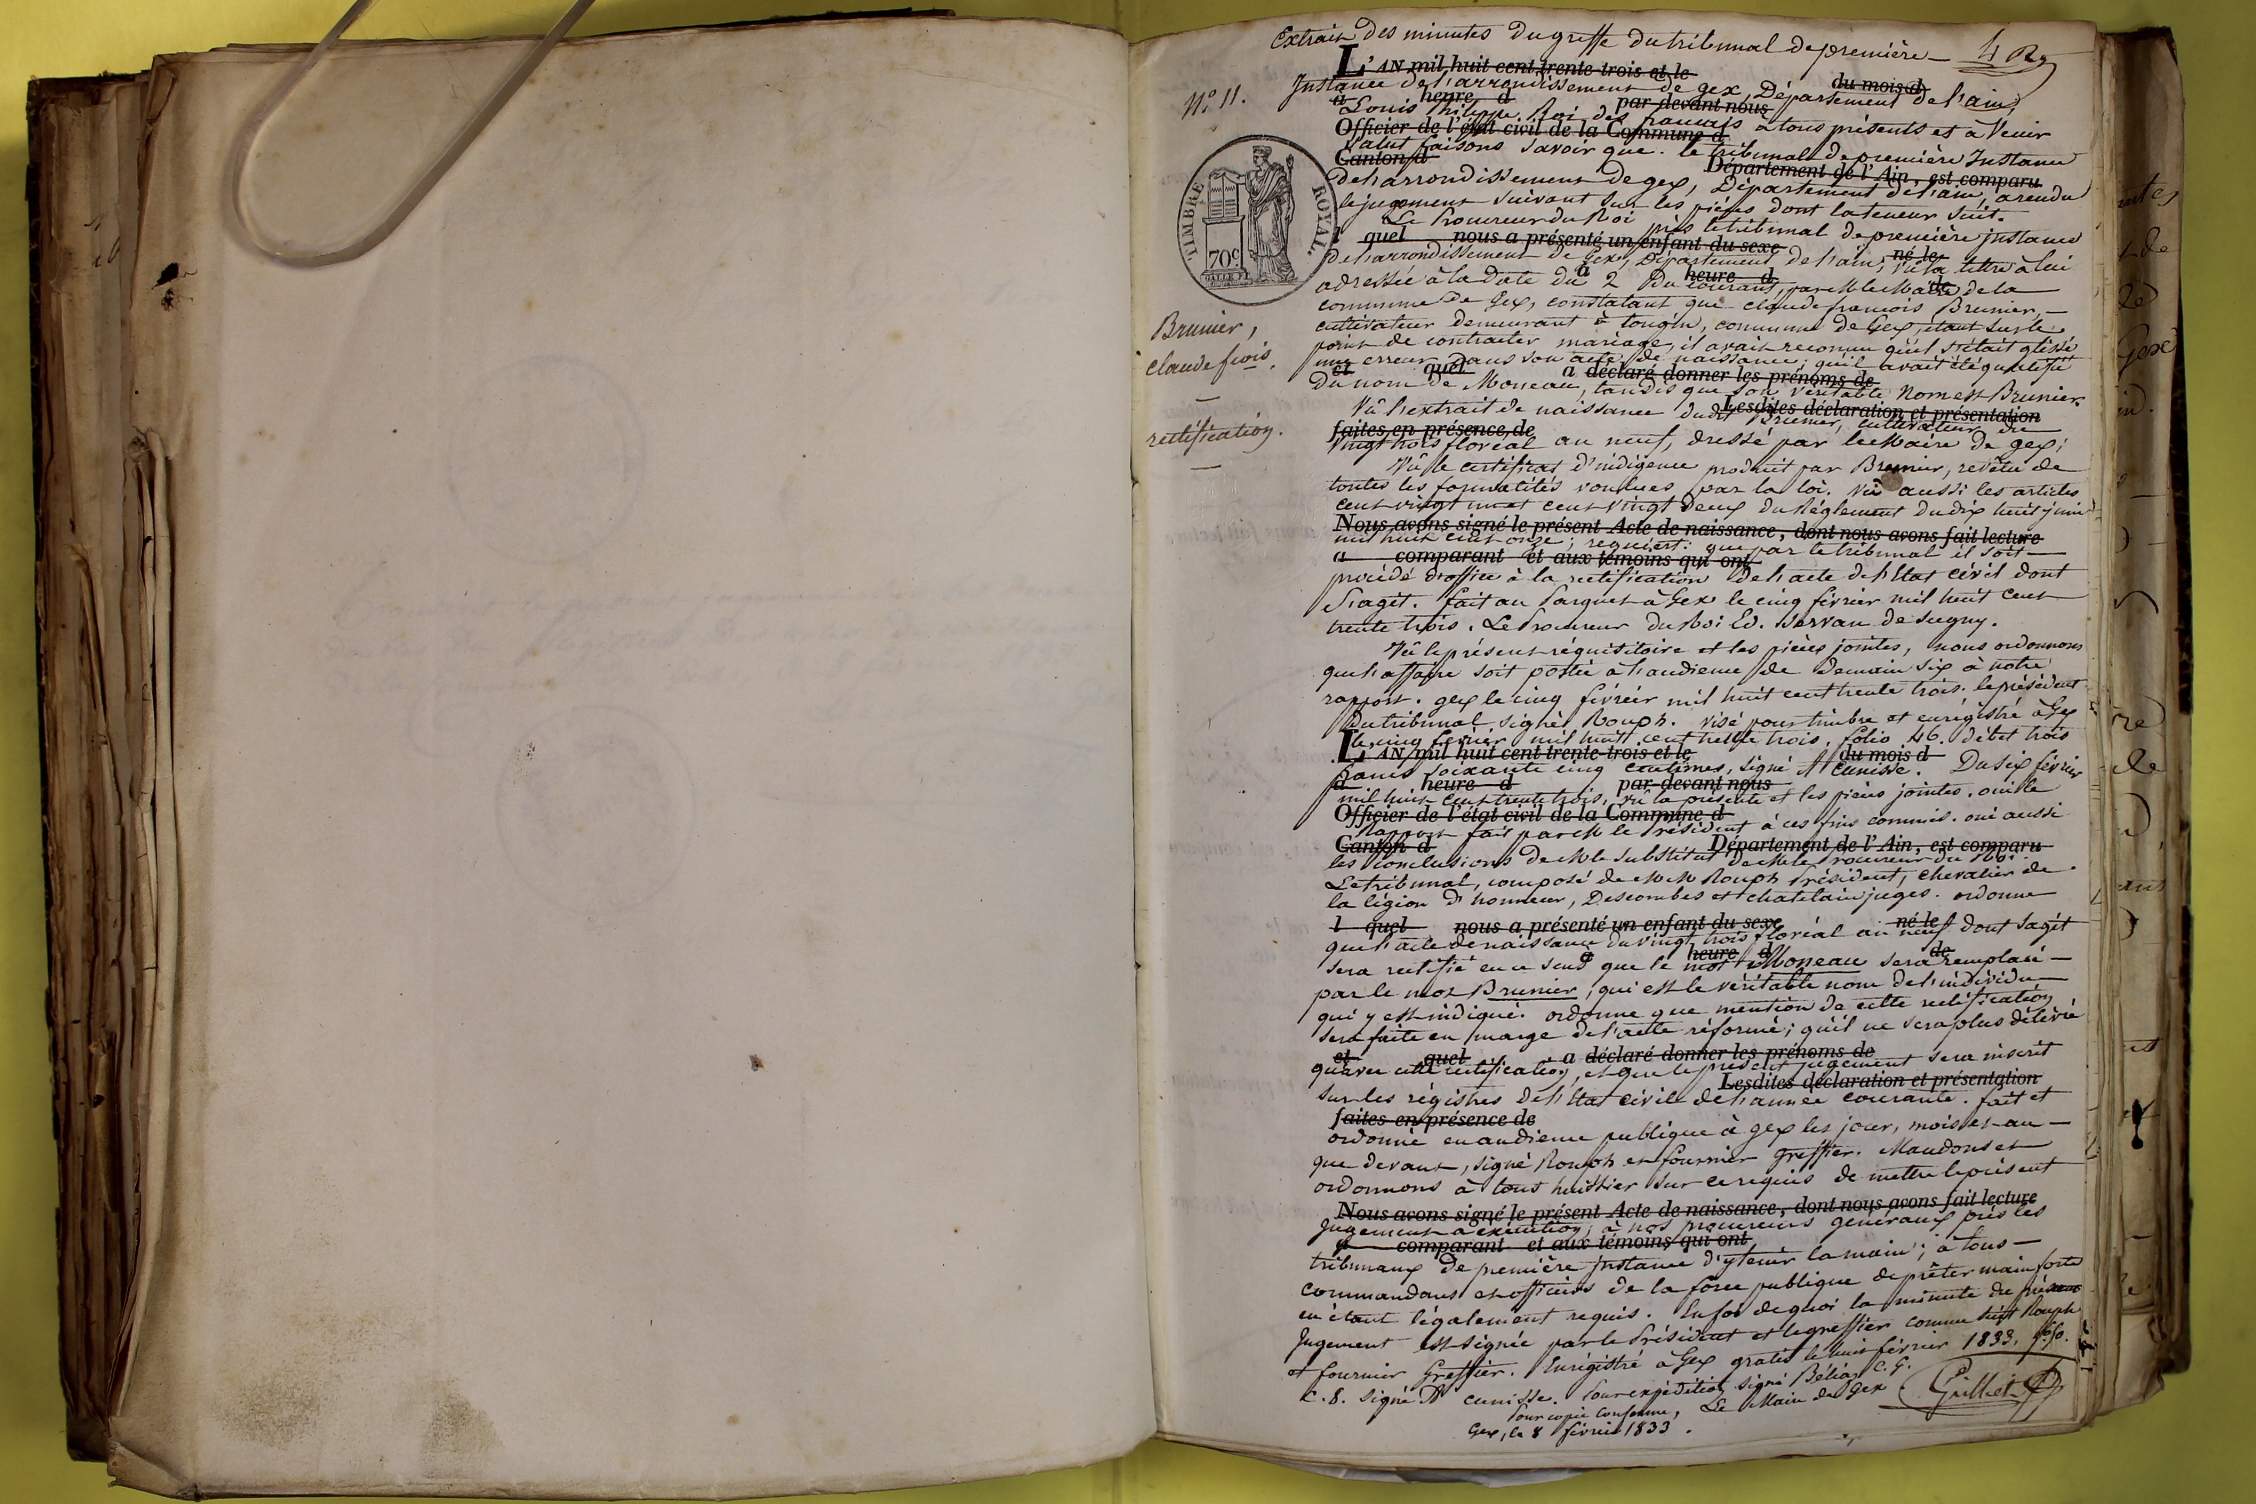 Extrait des minutes du greffe du tribunal de première — 4 Rg
L'AN mil huit cent trente-trois et le du mois d
N.° 11.
Instance de l'arrondissement de gex, Département de l'ain,
a heure d par-devant nous
Louis Philippe Roi des français à tous présents et à Venir
Officier de l'état civil de la Commune d
Salut faisons savoir que le tribunal de première Instance
Canton d Département de l'Ain, est comparu
de l'arrondissement de gex, Département de l'ain, a rendu
le jugement suivant sur les pièces dont la teneur suit.
TIMBRE ROYAL.
70.c
Le Procureur du Roi près le tribunal de première instance
l quel nous a présenté un enfant du sexe né le
de l'arrondissement de Gex, Département de l'ain, vu la lettre à lui
a heure d de
adressée à la date du 2 du courant, par M le Maire de la
commune de Gex, constatant que claude françois Brunier, —
cultivateur demeurant à tougin, commune de Gex, étant sur le
point de contracter mariage, il avait reconnu qu'il s'était glissé
une erreur dans son acte de naissance, qu'il avait été qualifié
et quel a déclaré donner les prénoms de
du nom de Moneau, tandis que son véritable Nom est Brunier.
Lesdites déclaration et présentation
Brunier,
claude fcois.
—
rectification.
—
Vû l'extrait de naissance dudit Brunier, cultivateur du
faites en présence de
vingt trois floréal an neuf, dressé par le Maire de gex;
Vû le certificat d'indigence produit par Brunier, revêtu de
toutes les formalités voulues par la loi. Vû aussi les articles
cent vingt un et cent vingt deux du Réglement du dix huit juin
Nous avons signé le présent Acte de naissance, dont nous avons fait lecture
mil huit cent onze; requiert: que par le tribunal il soit —
a comparant et aux témoins qui ont
procédé d'office à la rectification de l'acte de l'Etat civil dont
s'agit. fait au Parquet à Gex le cinq février mil huit cent
trente trois. Le Procureur du Roi Ed. Servan de sugny.
Vû le présent réquisitoire et les pièces jointes, nous ordonnons
que l'affaire soit portée à l'audience de demain six à notre
rapport. gex le cinq février mil huit cent trente trois. le président
du tribunal, signé Rouph. visé pour timbre et enrégistré à Gex
le cinq février mil huit cent trente trois, folio 46. débet trois
L'AN mil huit cent trente-trois et le du mois d
francs soixante cinq centimes, signé cunisse. Du six février
a heure d par-devant nous
mil huit cent trente trois, vû la présente et les pièces jointes. oui le
Officier de l'état civil de la Commune d
Rapport fait par M le Président à ces fins commis. oui aussi
Canton d Département de l'Ain, est comparu
les conclusions de M le Substitut de M le Procureur du Roi.
Le tribunal, composé de M M Rouph Président, chevalier de
la légion d'honneur, Descombes et chatelain juges. ordonne
l quel nous a présenté un enfant du sexe né le
que l'acte de naissance du vingt trois floréal an neuf dont s'agit
a heure d de
sera rectifié en ce sens que le mot Moneau sera remplacé —
par le mot Brunier, qui est le véritable nom de l'individu —
qui y est indiqué. ordonne que mention de cette rectification
sera faite en marge de l'acte réformé; qu'il ne sera plus délivré
et quel a déclaré donner les prénoms de
qu'avec cette rectification, et que le présent jugement sera inscrit
Lesdites déclaration et présentation
sur les régistres de l'Etat civil de l'année courante. fait et
faites en présence de
ordonné en audience publique à gex les jour, mois et an —
que devant, signé Rouph et fournier greffier. Mandons et
ordonnons à tous huissier sur ce requis de mettre le présent
Nous avons signé le présent Acte de naissance, dont nous avons fait lecture
Jugement à exécution; à nos procureurs généraux près les
a comparant et aux témoins qui ont
tribunaux de première instance d'y tenir la main; à tous —
commandans et officiers de la force publique de prêter main forte
en étant légalement requis. En foi de quoi la minute du présent
Jugement est signée par le Président et le greffier comme suit Rouph
et fournier Greffier. Enrégistré à Gex gratis le huit février 1833. f.°
C. 8. signé cunisse. Pour expédition signé Béliar C. G.
Pour copie conforme, Le Maire de Gex
Gex, le 8 février 1833.